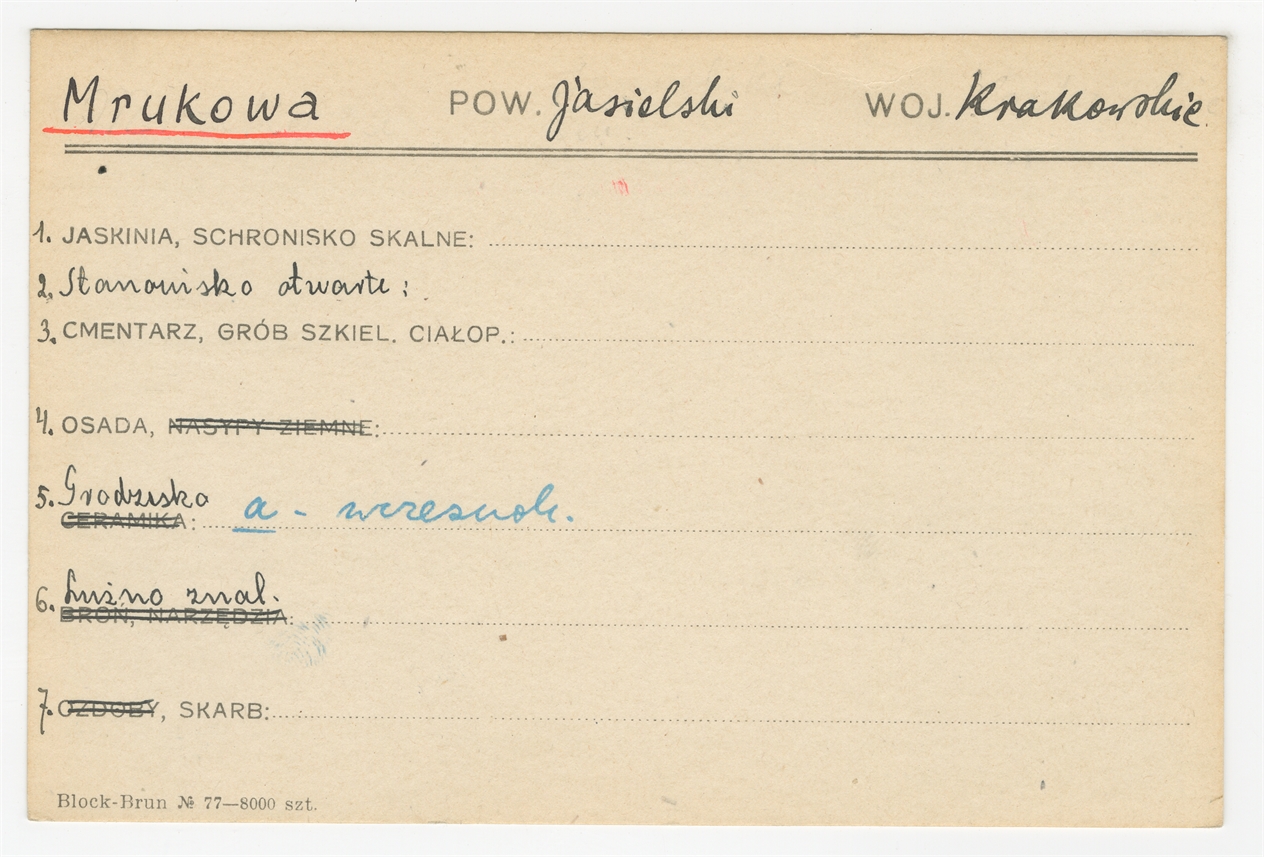 Mrukowa POW. Jasielski WOJ. Krakowskie.
1. JASKINIA, SCHRONISKO SKALNE:
2. Stanowisko otwarte:
3. CMENTARZ, GRÓB SZKIEL. CIAŁOP.:
4. OSADA, NASYPY ZIEMNE:
5. Grodzisko
CERAMIKA: a - wczesnoh.
6. Luźno znal.
BROŃ, NARZĘDZIA:
7. OZDOBY, SKARB:
Block-Brun № 77—8000 szt.